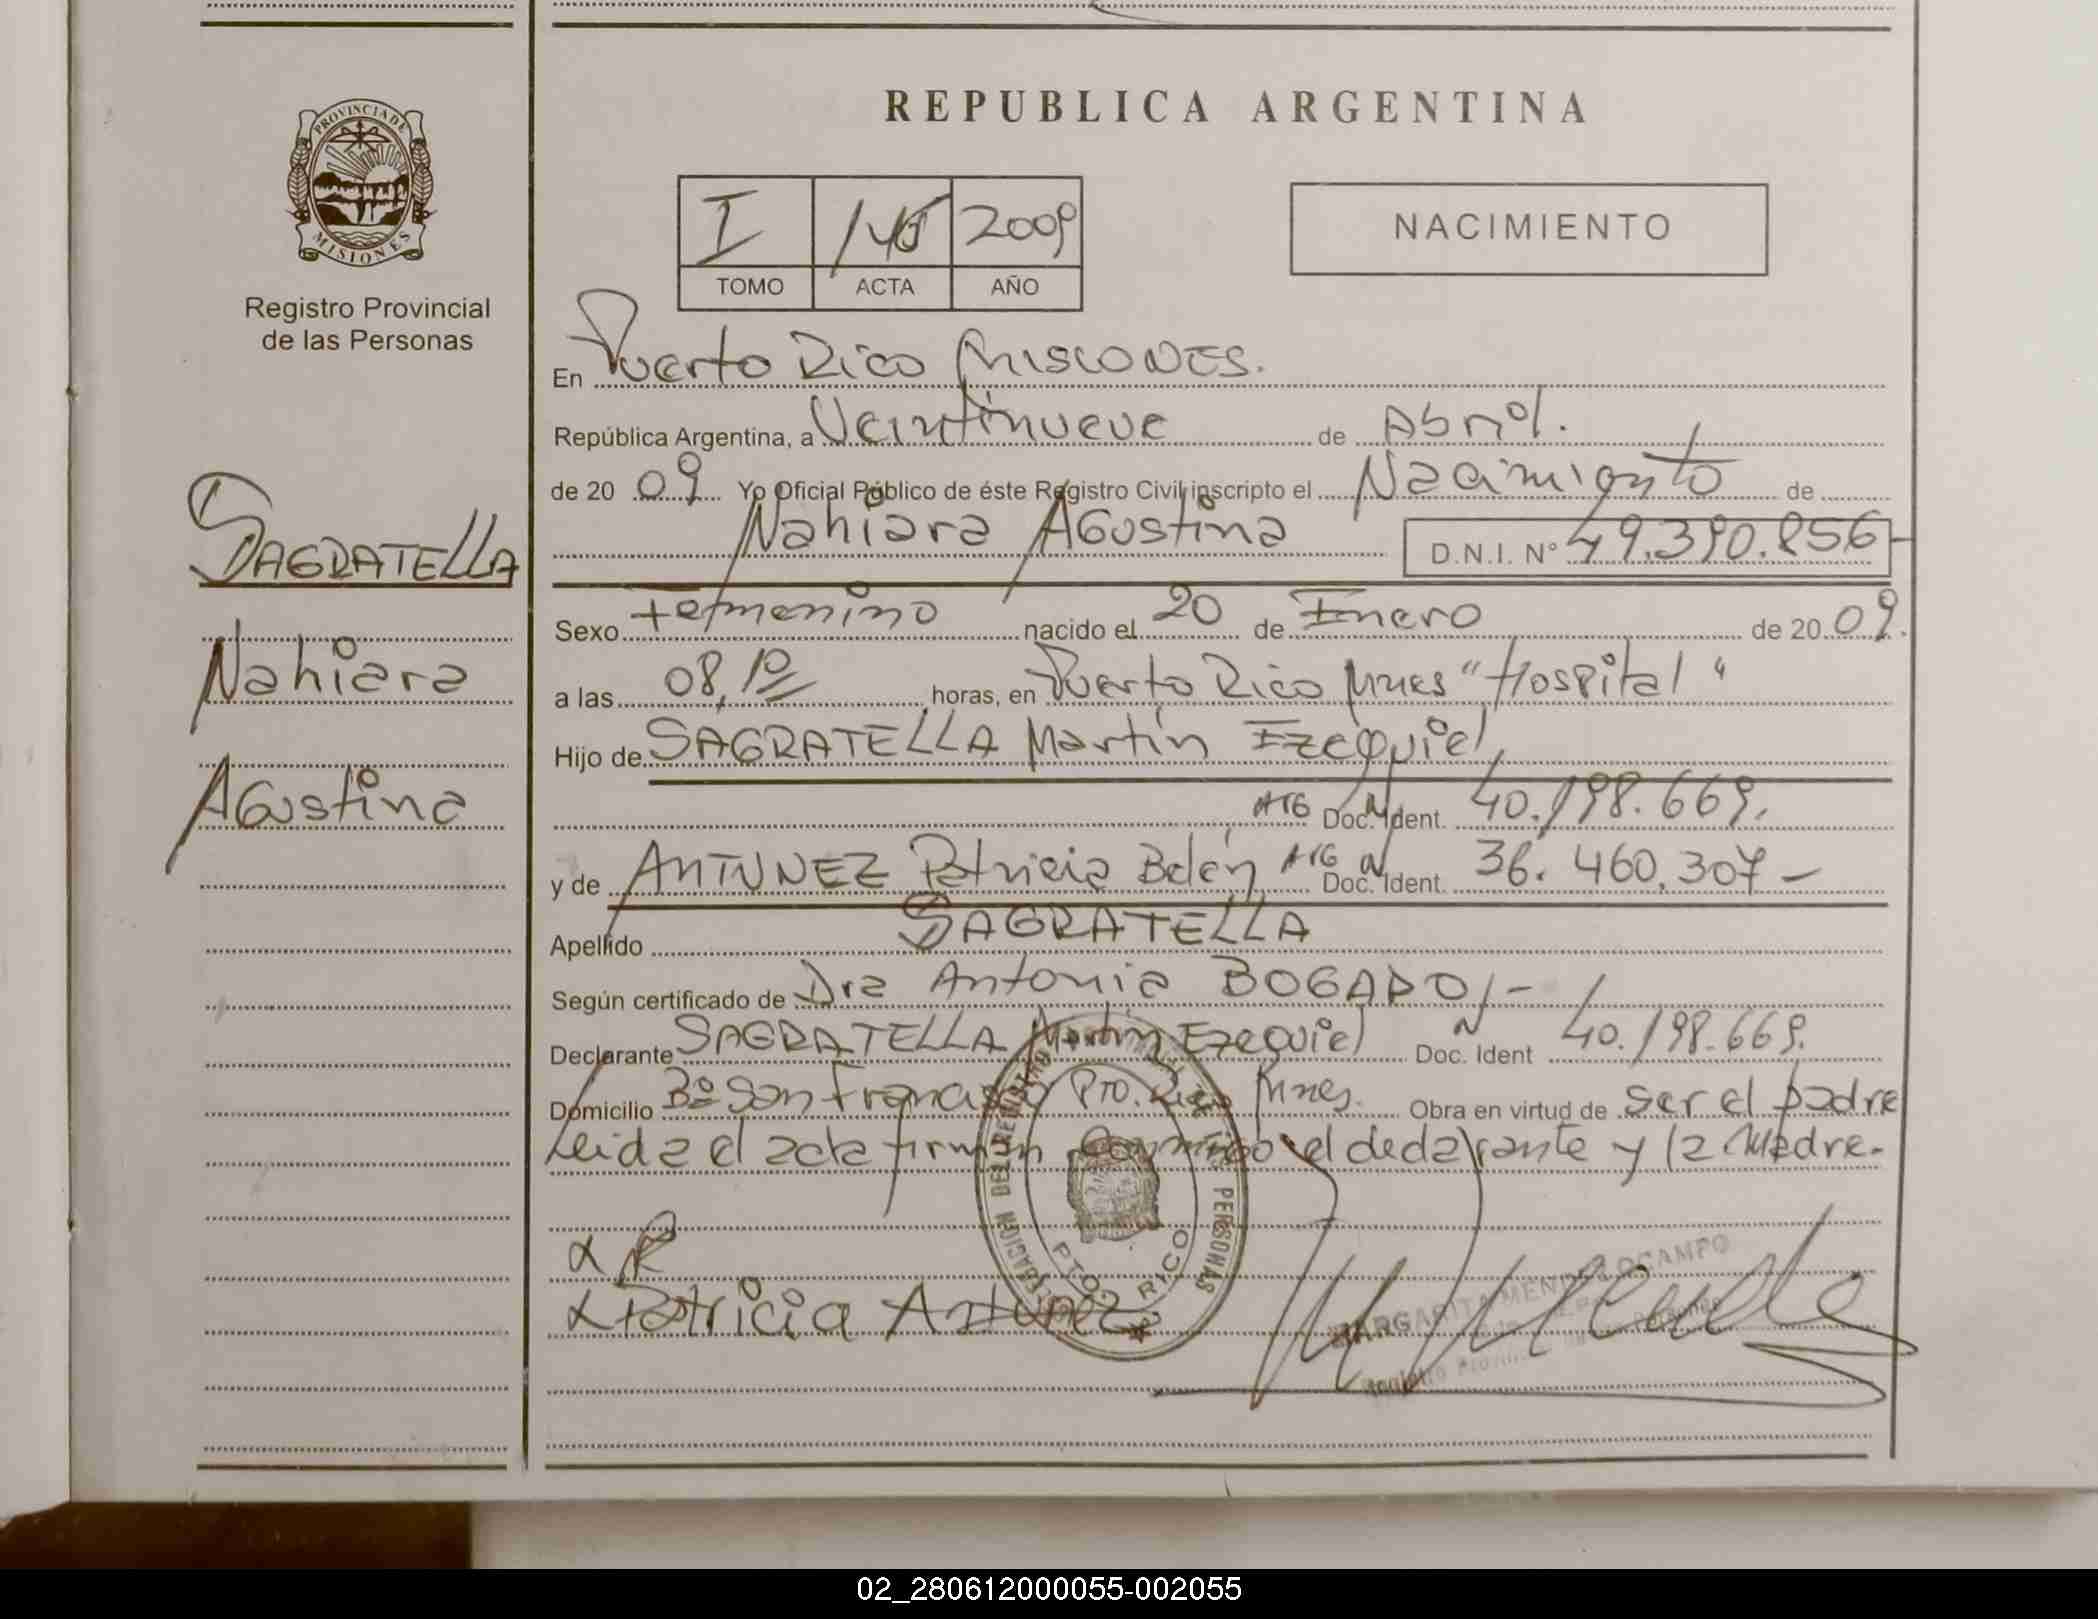 REPUBLICA ARGENTINA
PROVINCIA DE
MISIONES
Registro Provincial
de las Personas
I
2009
TOMO
ACTA
AÑO
NACIMIENTO
En Puerto Rico Misiones.
República Argentina, a Veintinueve de Abril.
de 20 09 Yo Oficial Público de éste Registro Civil inscripto el Nacimiento de
Nahiara Agustina D.N.I. N° 49.390.856
SAGRATELLA
Nahiara
Agustina
Sexo Femenino nacido el 20 de Enero de 20 09.
a las 08,10 horas, en Puerto Rico Mnes "Hospital"
Hijo de SAGRATELLA Martín Ezequiel
Arg Doc. Ident. 40.198.669.
y de ANTUNEZ Patricia Belén Arg Doc. Ident. 36.460.307 -
Apellido SAGRATELLA
Según certificado de Dra Antonia BOGADO/-
Declarante SAGRATELLA Martín Ezequiel Doc. Ident 40.198.669.
Domicilio Bº San Francisco Pto. Rico Mnes. Obra en virtud de ser el padre
Leida el acta firman conmigo el declarante y la Madre.
PERSONAS
PTO. RICO
Patricia Antunez
MARGARITA MENDEZ OCAMPO
02_280612000055-002055